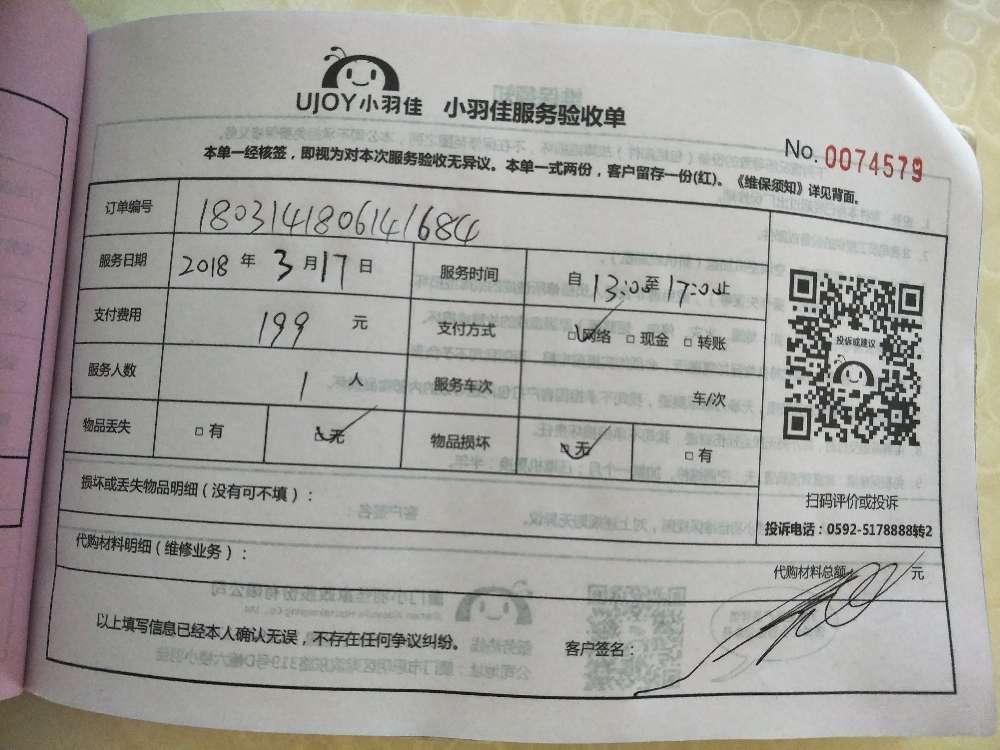 UJOY小羽佳 小羽佳服务验收单
No. 0074579
本单一经核签，即视为对本次服务验收无异议。本单一式两份，客户留存一份(红)。《维保须知》详见背面。
订单编号 1803141806141684
服务日期 2018 年 3 月 17 日 服务时间 自 13:00 至 17:00 止
支付费用 199 元 支付方式 □网络 □现金 □转账
服务人数 1 人 服务车次 车/次
物品丢失 □有 □无 物品损坏 □无 □有
投诉或建议
扫码评价或投诉
投诉电话：0592-5178888转2
损坏或丢失物品明细（没有可不填）：
代购材料明细（维修业务）：
代购材料总额： 元
以上填写信息已经本人确认无误，不存在任何争议纠纷。 客户签名：